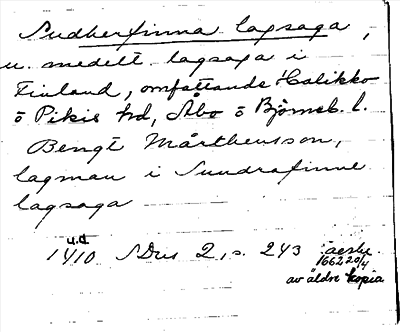 Sudherfinna lagsaga,
u. medelt. lagsaga i
Finland, omfattande Halikko
o Pikis hd, Åbo o Björneb. l.
Bengt Mårthensson,
lagman i Sundrafinne
lagsaga
u.d.
1410 SDns 2, s. 243
1662 20/4
av äldre kopia